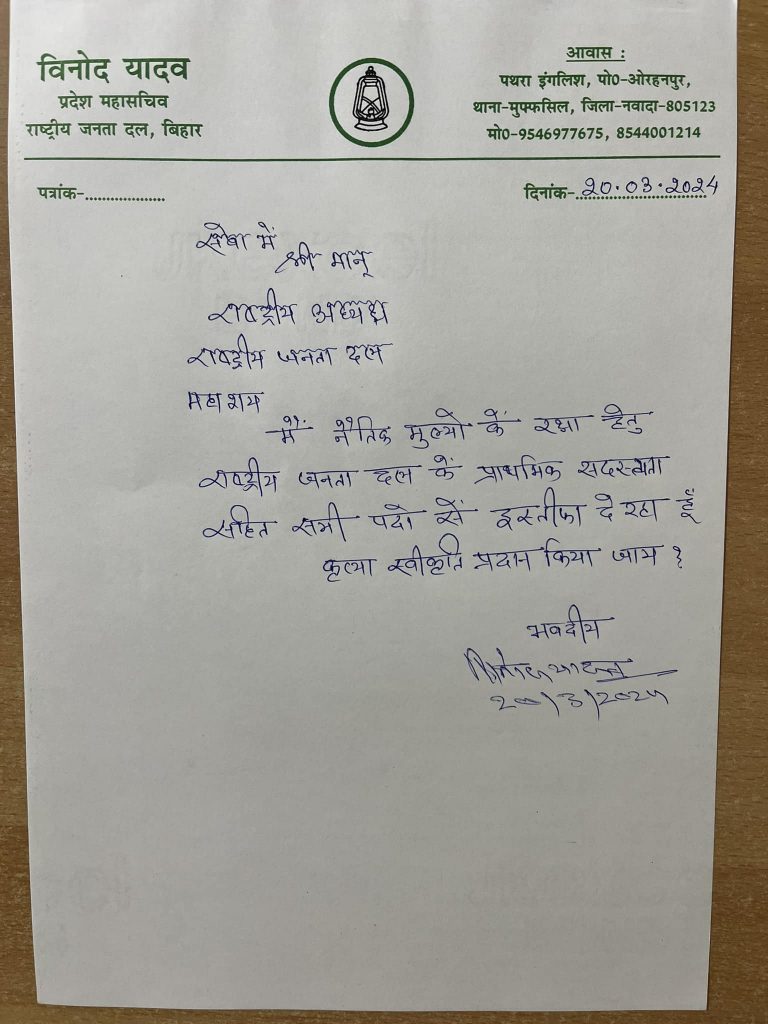 विनोद यादव
प्रदेश महासचिव
राष्ट्रीय जनता दल, बिहार
आवास :
पथरा इंगलिश, पो0-ओरहनपुर,
थाना-मुफ्फसिल, जिला-नवादा-805123
मो0-9546977675, 8544001214
पत्रांक-....................
दिनांक-20.03.2024
सेवा में
श्री मान्
राषट्रीय अध्यक्ष
राषट्रीय जनता दल
महाशय
मैं नैतिक मुल्यो कें रक्षा हेतु
राषट्रीय जनता दल कें प्राथमिक सदस्यता
सहित सभी पदो सें इस्तीफा दे रहा हूँ
कृत्या स्वीकृति प्रदान किया जाय ?
भवदीय
विनोद यादव
20/3/2024